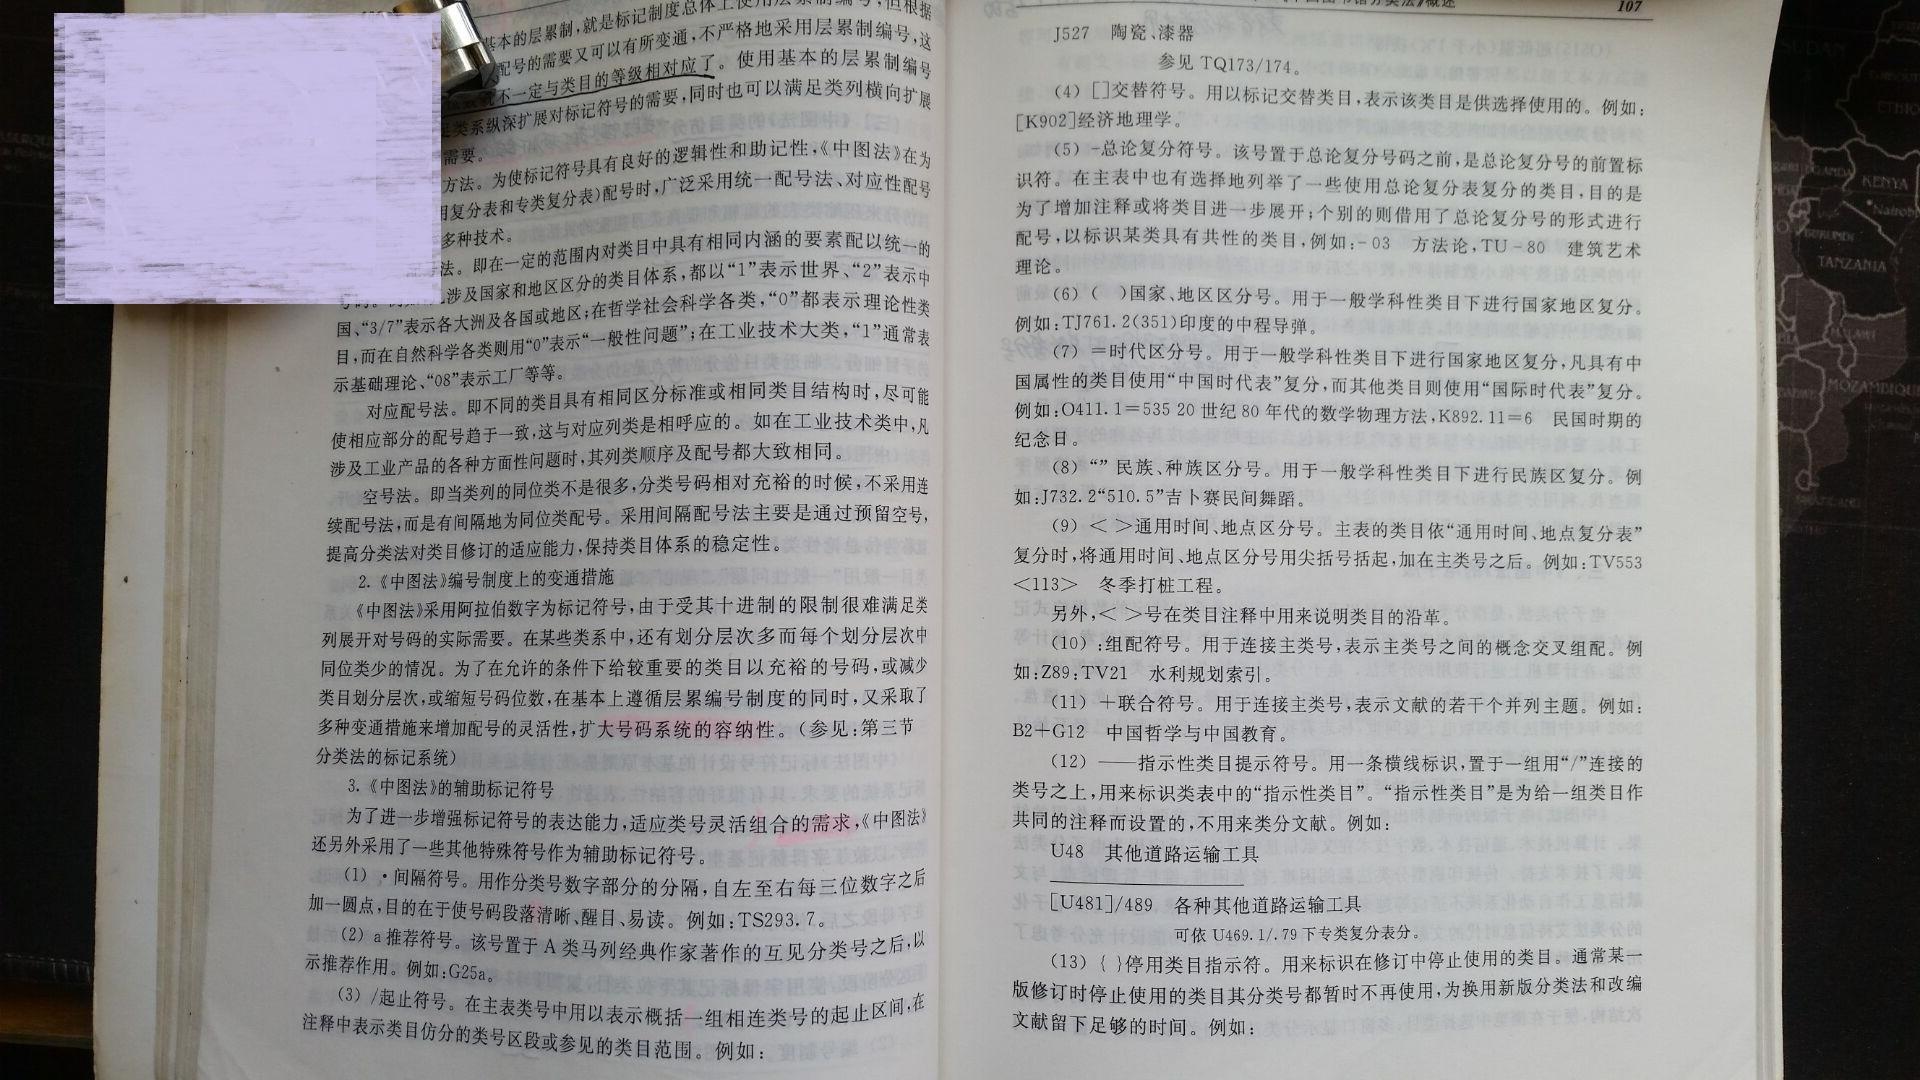 基本的层累制,就是标记制度总体上使用层累制编号,但根据
配号的需要又可以有所变通,不严格地采用层累制编号,这
不一定与类目的等级相对应了。使用基本的层累制编号
类系纵深扩展对标记符号的需要,同时也可以满足类列横向扩展
需要。
方法。为使标记符号具有良好的逻辑性和助记性,《中图法》在为
复分表和专类复分表)配号时,广泛采用统一配号法、对应性配号
多种技术。
法。即在一定的范围内对类目中具有相同内涵的要素配以统一的
涉及国家和地区区分的类目体系,都以“1”表示世界、“2”表示中
国、“3/7”表示各大洲及各国或地区;在哲学社会科学各类,“0”都表示理论性类
目,而在自然科学各类则用“0”表示“一般性问题”;在工业技术大类,“1”通常表
示基础理论、“08”表示工厂等等。
对应配号法。即不同的类目具有相同区分标准或相同类目结构时,尽可能
使相应部分的配号趋于一致,这与对应列类是相呼应的。如在工业技术类中,凡
涉及工业产品的各种方面性问题时,其列类顺序及配号都大致相同。
空号法。即当类列的同位类不是很多,分类号码相对充裕的时候,不采用连
续配号法,而是有间隔地为同位类配号。采用间隔配号法主要是通过预留空号,
提高分类法对类目修订的适应能力,保持类目体系的稳定性。
2.《中图法》编号制度上的变通措施
《中图法》采用阿拉伯数字为标记符号,由于受其十进制的限制很难满足类
列展开对号码的实际需要。在某些类系中,还有划分层次多而每个划分层次中
同位类少的情况。为了在允许的条件下给较重要的类目以充裕的号码,或减少
类目划分层次,或缩短号码位数,在基本上遵循层累编号制度的同时,又采取了
多种变通措施来增加配号的灵活性,扩大号码系统的容纳性。(参见:第三节
分类法的标记系统)
3.《中图法》的辅助标记符号
为了进一步增强标记符号的表达能力,适应类号灵活组合的需求,《中图法》
还另外采用了一些其他特殊符号作为辅助标记符号。
(1) ·间隔符号。用作分类号数字部分的分隔,自左至右每三位数字之后
加一圆点,目的在于使号码段落清晰、醒目、易读。例如:TS293.7。
(2) a推荐符号。该号置于A类马列经典作家著作的互见分类号之后,以
示推荐作用。例如:G25a。
(3) /起止符号。在主表类号中用以表示概括一组相连类号的起止区间,在
注释中表示类目仿分的类号区段或参见的类目范围。例如:
107
J527 陶瓷、漆器
参见TQ173/174。
(4) []交替符号。用以标记交替类目,表示该类目是供选择使用的。例如:
[K902]经济地理学。
(5) -总论复分符号。该号置于总论复分号码之前,是总论复分号的前置标
识符。在主表中也有选择地列举了一些使用总论复分表复分的类目,目的是
为了增加注释或将类目进一步展开;个别的则借用了总论复分号的形式进行
配号,以标识某类具有共性的类目,例如:-03 方法论,TU-80 建筑艺术
理论。
(6) ( )国家、地区区分号。用于一般学科性类目下进行国家地区复分。
例如:TJ761.2(351)印度的中程导弹。
(7) =时代区分号。用于一般学科性类目下进行国家地区复分,凡具有中
国属性的类目使用“中国时代表”复分,而其他类目则使用“国际时代表”复分。
例如:O411.1=535 20世纪80年代的数学物理方法,K892.11=6 民国时期的
纪念日。
(8) “”民族、种族区分号。用于一般学科性类目下进行民族区复分。例
如:J732.2“510.5”吉卜赛民间舞蹈。
(9) < >通用时间、地点区分号。主表的类目依“通用时间、地点复分表”
复分时,将通用时间、地点区分号用尖括号括起,加在主类号之后。例如:TV553
<113> 冬季打桩工程。
另外,< >号在类目注释中用来说明类目的沿革。
(10) :组配符号。用于连接主类号,表示主类号之间的概念交叉组配。例
如:Z89:TV21 水利规划索引。
(11) +联合符号。用于连接主类号,表示文献的若干个并列主题。例如:
B2+G12 中国哲学与中国教育。
(12) ——指示性类目提示符号。用一条横线标识,置于一组用“/”连接的
类号之上,用来标识类表中的“指示性类目”。“指示性类目”是为给一组类目作
共同的注释而设置的,不用来类分文献。例如:
U48 其他道路运输工具
[U481]/489 各种其他道路运输工具
可依U469.1/.79下专类复分表分。
(13) { }停用类目指示符。用来标识在修订中停止使用的类目。通常某一
版修订时停止使用的类目其分类号都暂时不再使用,为换用新版分类法和改编
文献留下足够的时间。例如:
KENYA
TANZANIA
MOZAMBIQUE